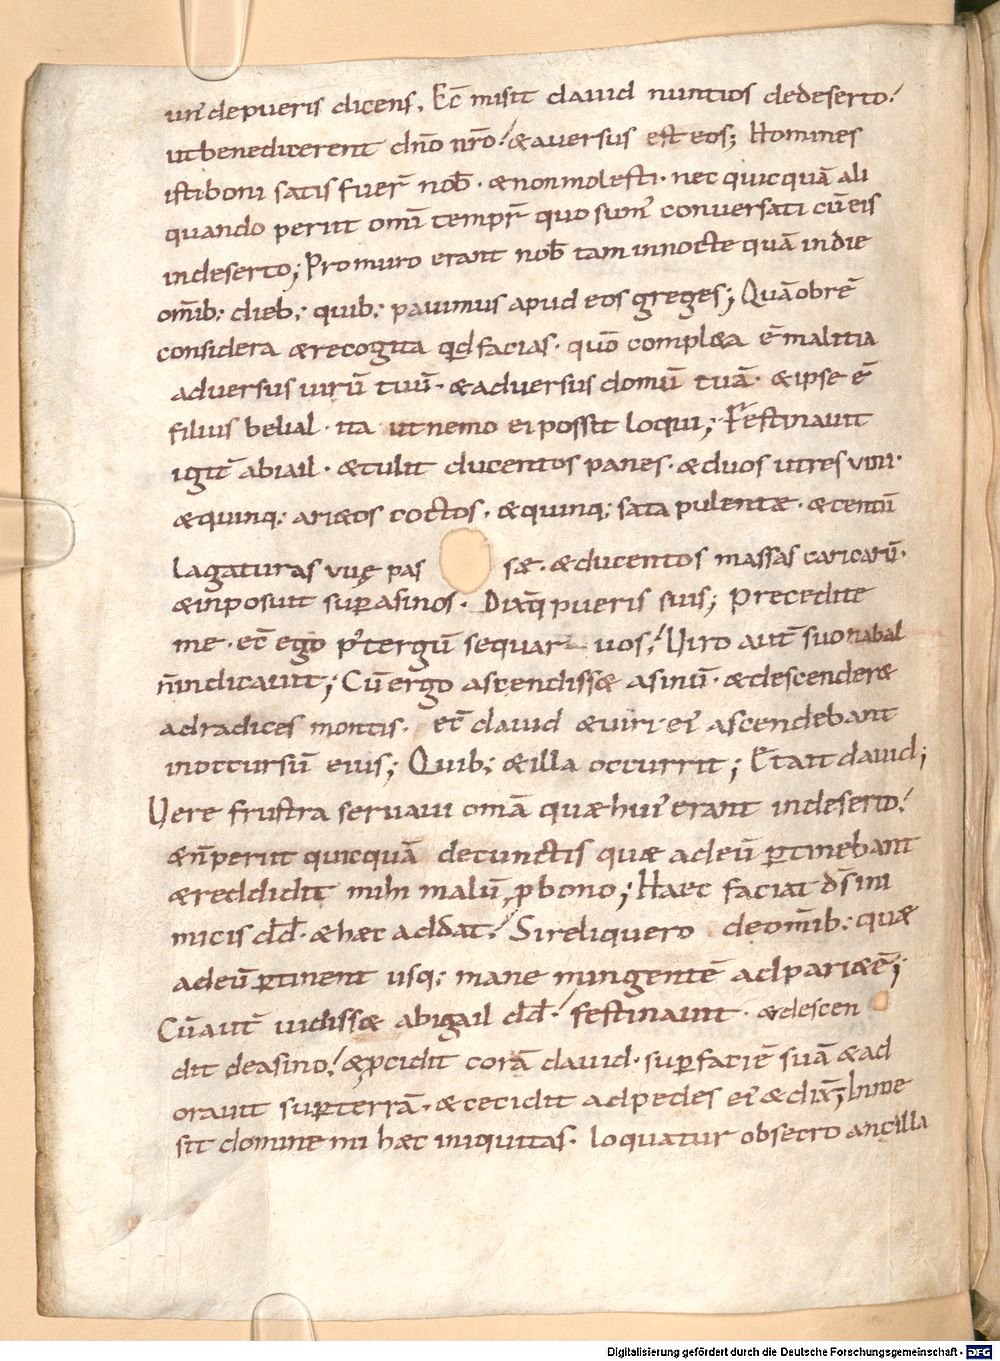 un' de pueris dicens. Ec̄ misit david nuntios dedeserto!
ut benedicerent dn̄o nr̄o! & aversus est eos; Homines
isti boni satis fuer̄ nob̄. & non molesti. nec quicquā ali
quando periit om̄i tempr̄ quo sum' conversati cū eis
indeserto; Pro muro erant nob̄ tam innocte quā indie
om̄ib; dieb; quib; pavimus apud eos greges; Quāobrē
considera & recogita qd facias. quō compl&a ē malitia
adversus virū tuū. & adversus domū tuā. & ipse ē
filius belial. ita ut nemo ei possit loqui; Festinavit
igit̄ abiail. & tulit ducentos panes. & duos utres vini.
& quinq; ari&os coctos. & quinq; sata pulentæ. & centū
lagaturas vuę pas sæ. & ducentos massas caricarū.
& inposuit sup asinos. Dixitq pueris suis; Precedite
me. ec̄ ego p' tergū sequar vos! Viro aut̄ suo nabal
n̄ indicavit; Cū ergo ascendiss& asinū. & descender&
adradices montis. et̄ david & viri ei' ascendebant
inoccursū eius; Quib; & illa occurrit; Et ait david;
Vere frustra servavi om̄a quæ hui' erant indeserto!
& n̄ periit quicquā decunctis quæ adeū ptinebant
& reddidit mihi malū pbono; Haec faciat d̄s ini
micis dd̄. & hæc addat! Si reliquero deom̄ib; quæ
adeū ptinent usq; mane mingentē ad pari&ē;
Cū aut̄ vidiss& abigail dd̄! festinavit. & descen
dit deasino! & pcidit corā david. sup faciē suā & ad
oravit sup terrā. & cecidit adpedes ei' & dix̄; Inme
sit domine mi hæc iniquitas. loquatur obsecro ancilla
Digitalisierung gefördert durch die Deutsche Forschungsgemeinschaft - DFG